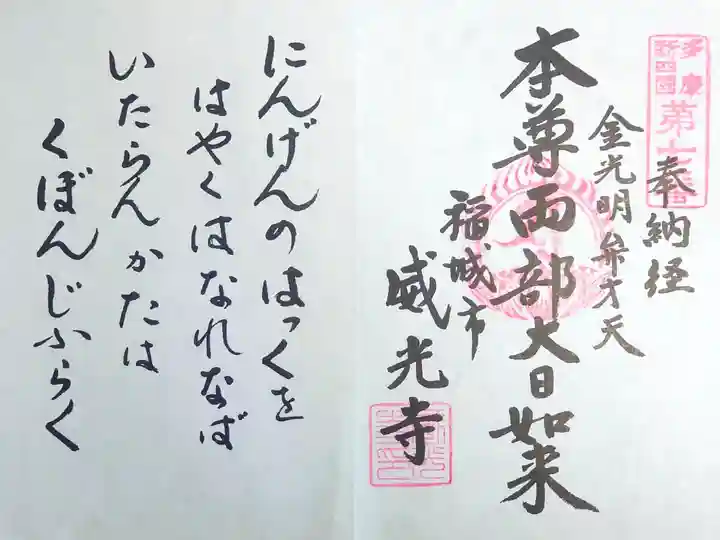 多摩
新四国
第七番
奉納経
金光明弁才天
本尊両部大日如来
稲城市
威光寺
にんげんのはっくを
はやくはなれなば
いたらんかたは
くぼんじふらく